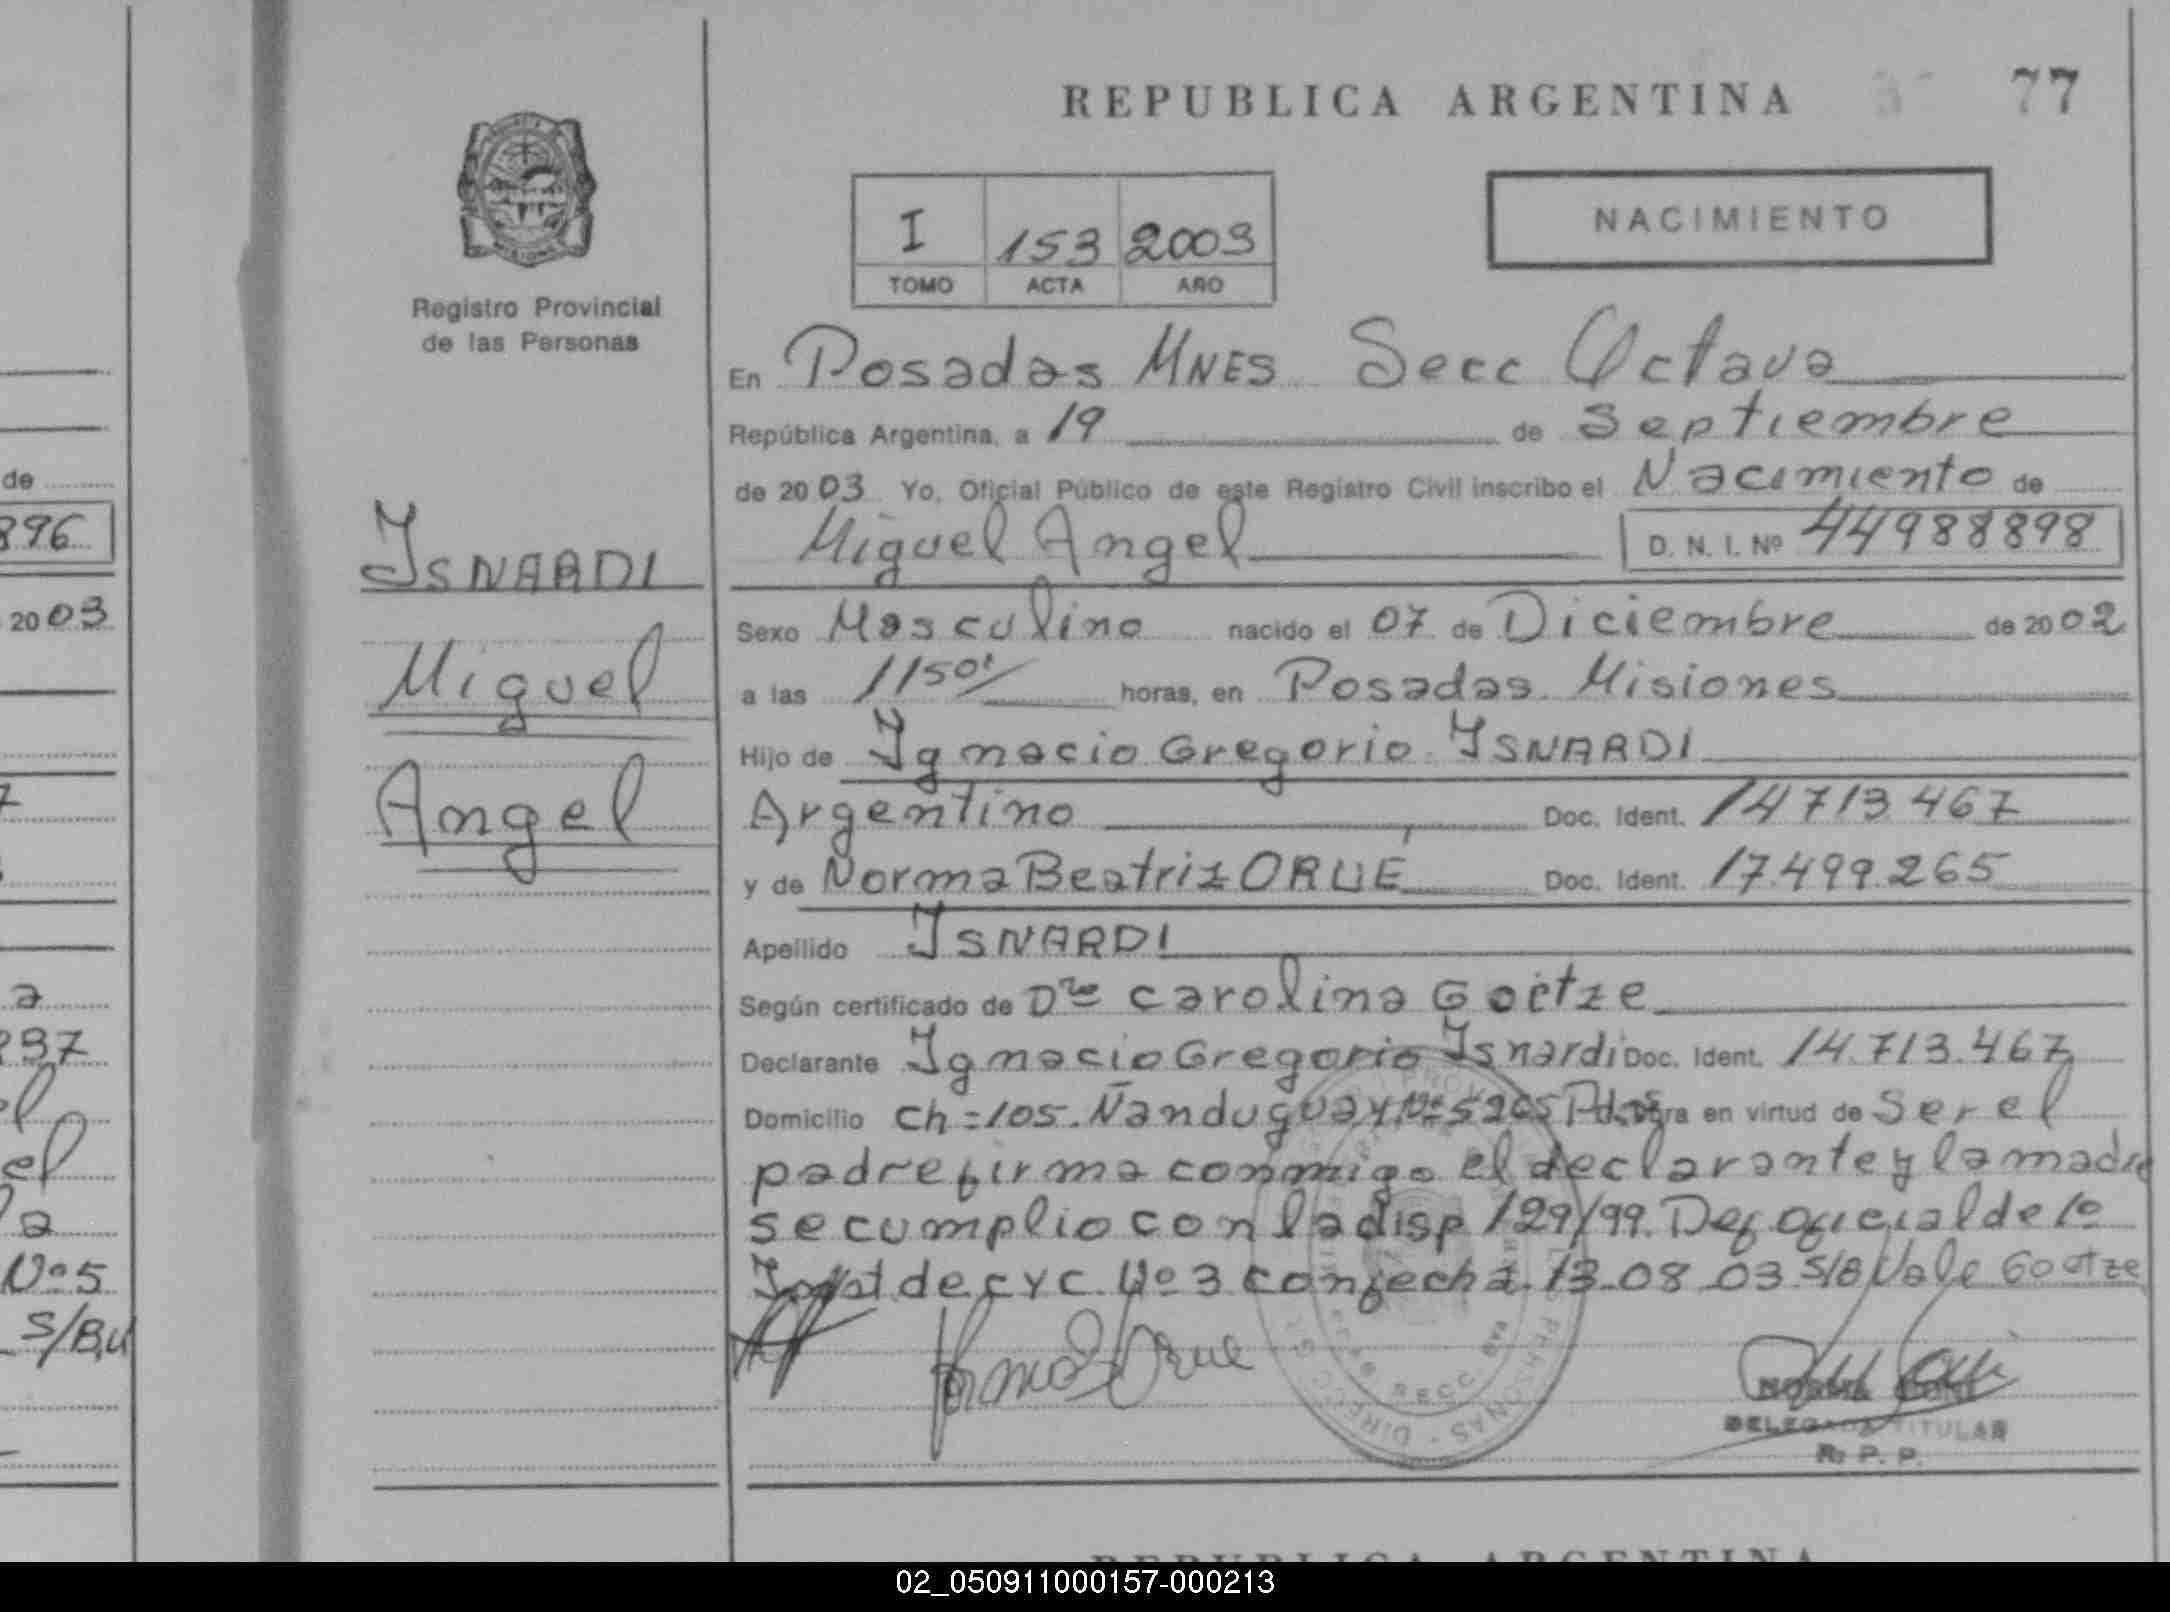 REPUBLICA ARGENTINA 77
NACIMIENTO
I 153 2003
TOMO ACTA AÑO
Registro Provincial
de las Personas
En Posadas MNES Secc Octava
República Argentina, a 19 de Septiembre
de 2003 Yo, Oficial Público de este Registro Civil inscribo el Nacimiento de
Miguel Angel D. N. I. Nº 44988898
ISNARDI
Miguel
Angel
Sexo Masculino nacido el 07 de Diciembre de 2002
a las 1150' horas, en Posadas Misiones
Hijo de Ignacio Gregorio ISNARDI
Argentino Doc. Ident. 14713467
y de Norma Beatriz ORUÉ Doc. Ident. 17.499.265
Apellido ISNARDI
Según certificado de Dra Carolina Goetze
Declarante Ignacio Gregorio Isnardi Doc. Ident. 14.713.467
Domicilio Ch=105. Ñanduguay Nº 5205 Pdas Obra en virtud de Ser el
padre firma conmigo el declarante y la madre
se cumplio con la disp 129/99. Def oficial de 1º
Inst de C y C Nº 3 con fecha 13-08-03 S/B Vale Goetze
Norma B Orue
SECC. 8va
DELEGADA TITULAR
R. P. P.
de
896
2003
a
897
el
el
la
Nº 5
S/B.U
REPUBLICA ARGENTINA
02_050911000157-000213